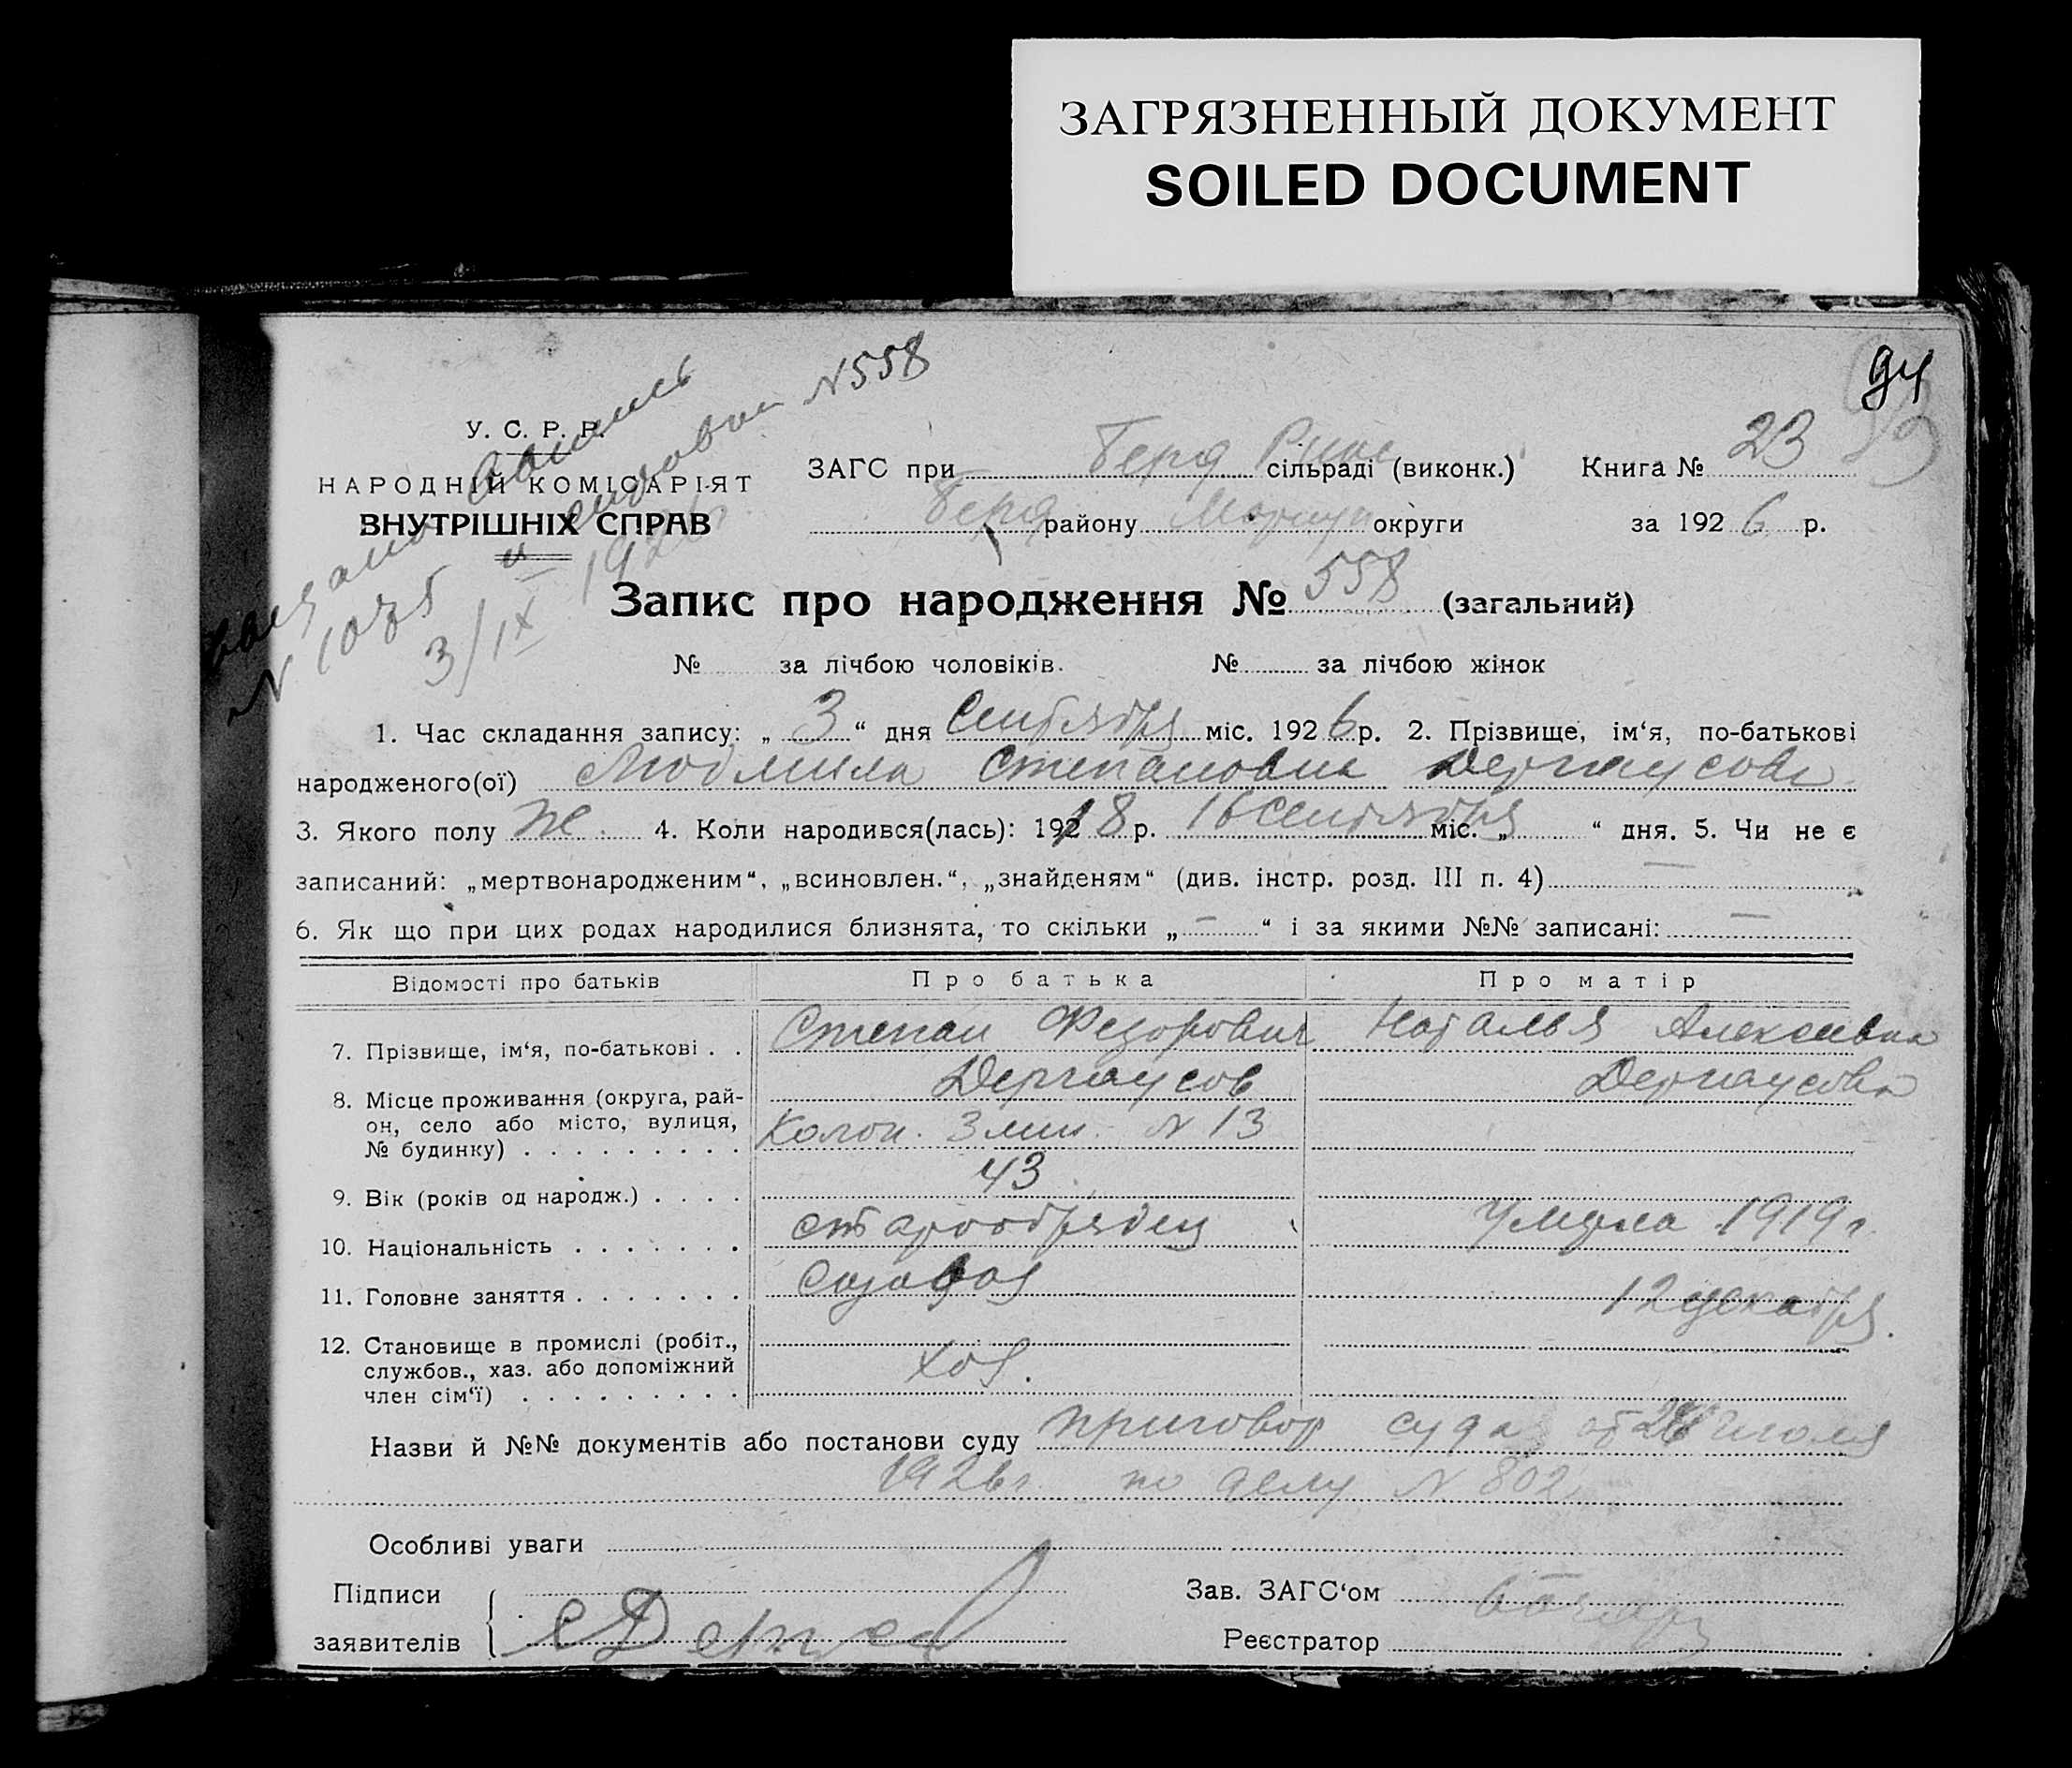 ЗАГРЯЗНЕННЫЙ ДОКУМЕНТ
SOILED DOCUMENT
94
N 558
N 1035
3/IX 1926
У. С. Р. Р.
НАРОДНІЙ КОМІСАРІЯТ
ВНУТРІШНІХ СПРАВ
ЗАГС при Берд Рика сільраді (виконк.) Книга № 23
Берд району Мариуп округи за 1926 р.
Запис про народження № 558 (загальний)
№ за лічбою чоловіків. № за лічбою жінок
1. Час складання запису: „ 3 “ дня Сентября міс. 1926 р. 2. Прізвище, ім‘я, по-батькові
народженого(ої) Людмила Степановна
3. Якого полу ж. 4. Коли народився(лась): 1918 р. 16 Сентября міс. „ “ дня. 5. Чи не є
записаний: „мертвонародженим“, „всиновлен.“, „знайденям“ (див. інстр. розд. III п. 4) —
6. Як що при цих родах народилися близнята, то скільки „ — “ і за якими №№ записані: —
Відомості про батьків Про батька Про матір
7. Прізвище, ім‘я, по-батькові . . Степан Федорович Наталья Алексеевна
8. Місце проживання (округа, рай-
он, село або місто, вулиця, Колон. 3 лин. N 13
№ будинку) . . . . . . . . .
9. Вік (років од народж.) . . . . 43
10. Національність . . . . . . . старообрядец Умерла 1919 г.
11. Головне заняття . . . . . . . 12 декабря.
12. Становище в промислі (робіт.,
службов., хаз. або допоміжний хоз.
член сім‘ї) . . . . . . . . .
Назви й №№ документів або постанови суду приговор суда от июля
1926 г. по делу N 802
Особливі уваги
Підписи Зав. ЗАГС‘ом
заявителів Реєстратор